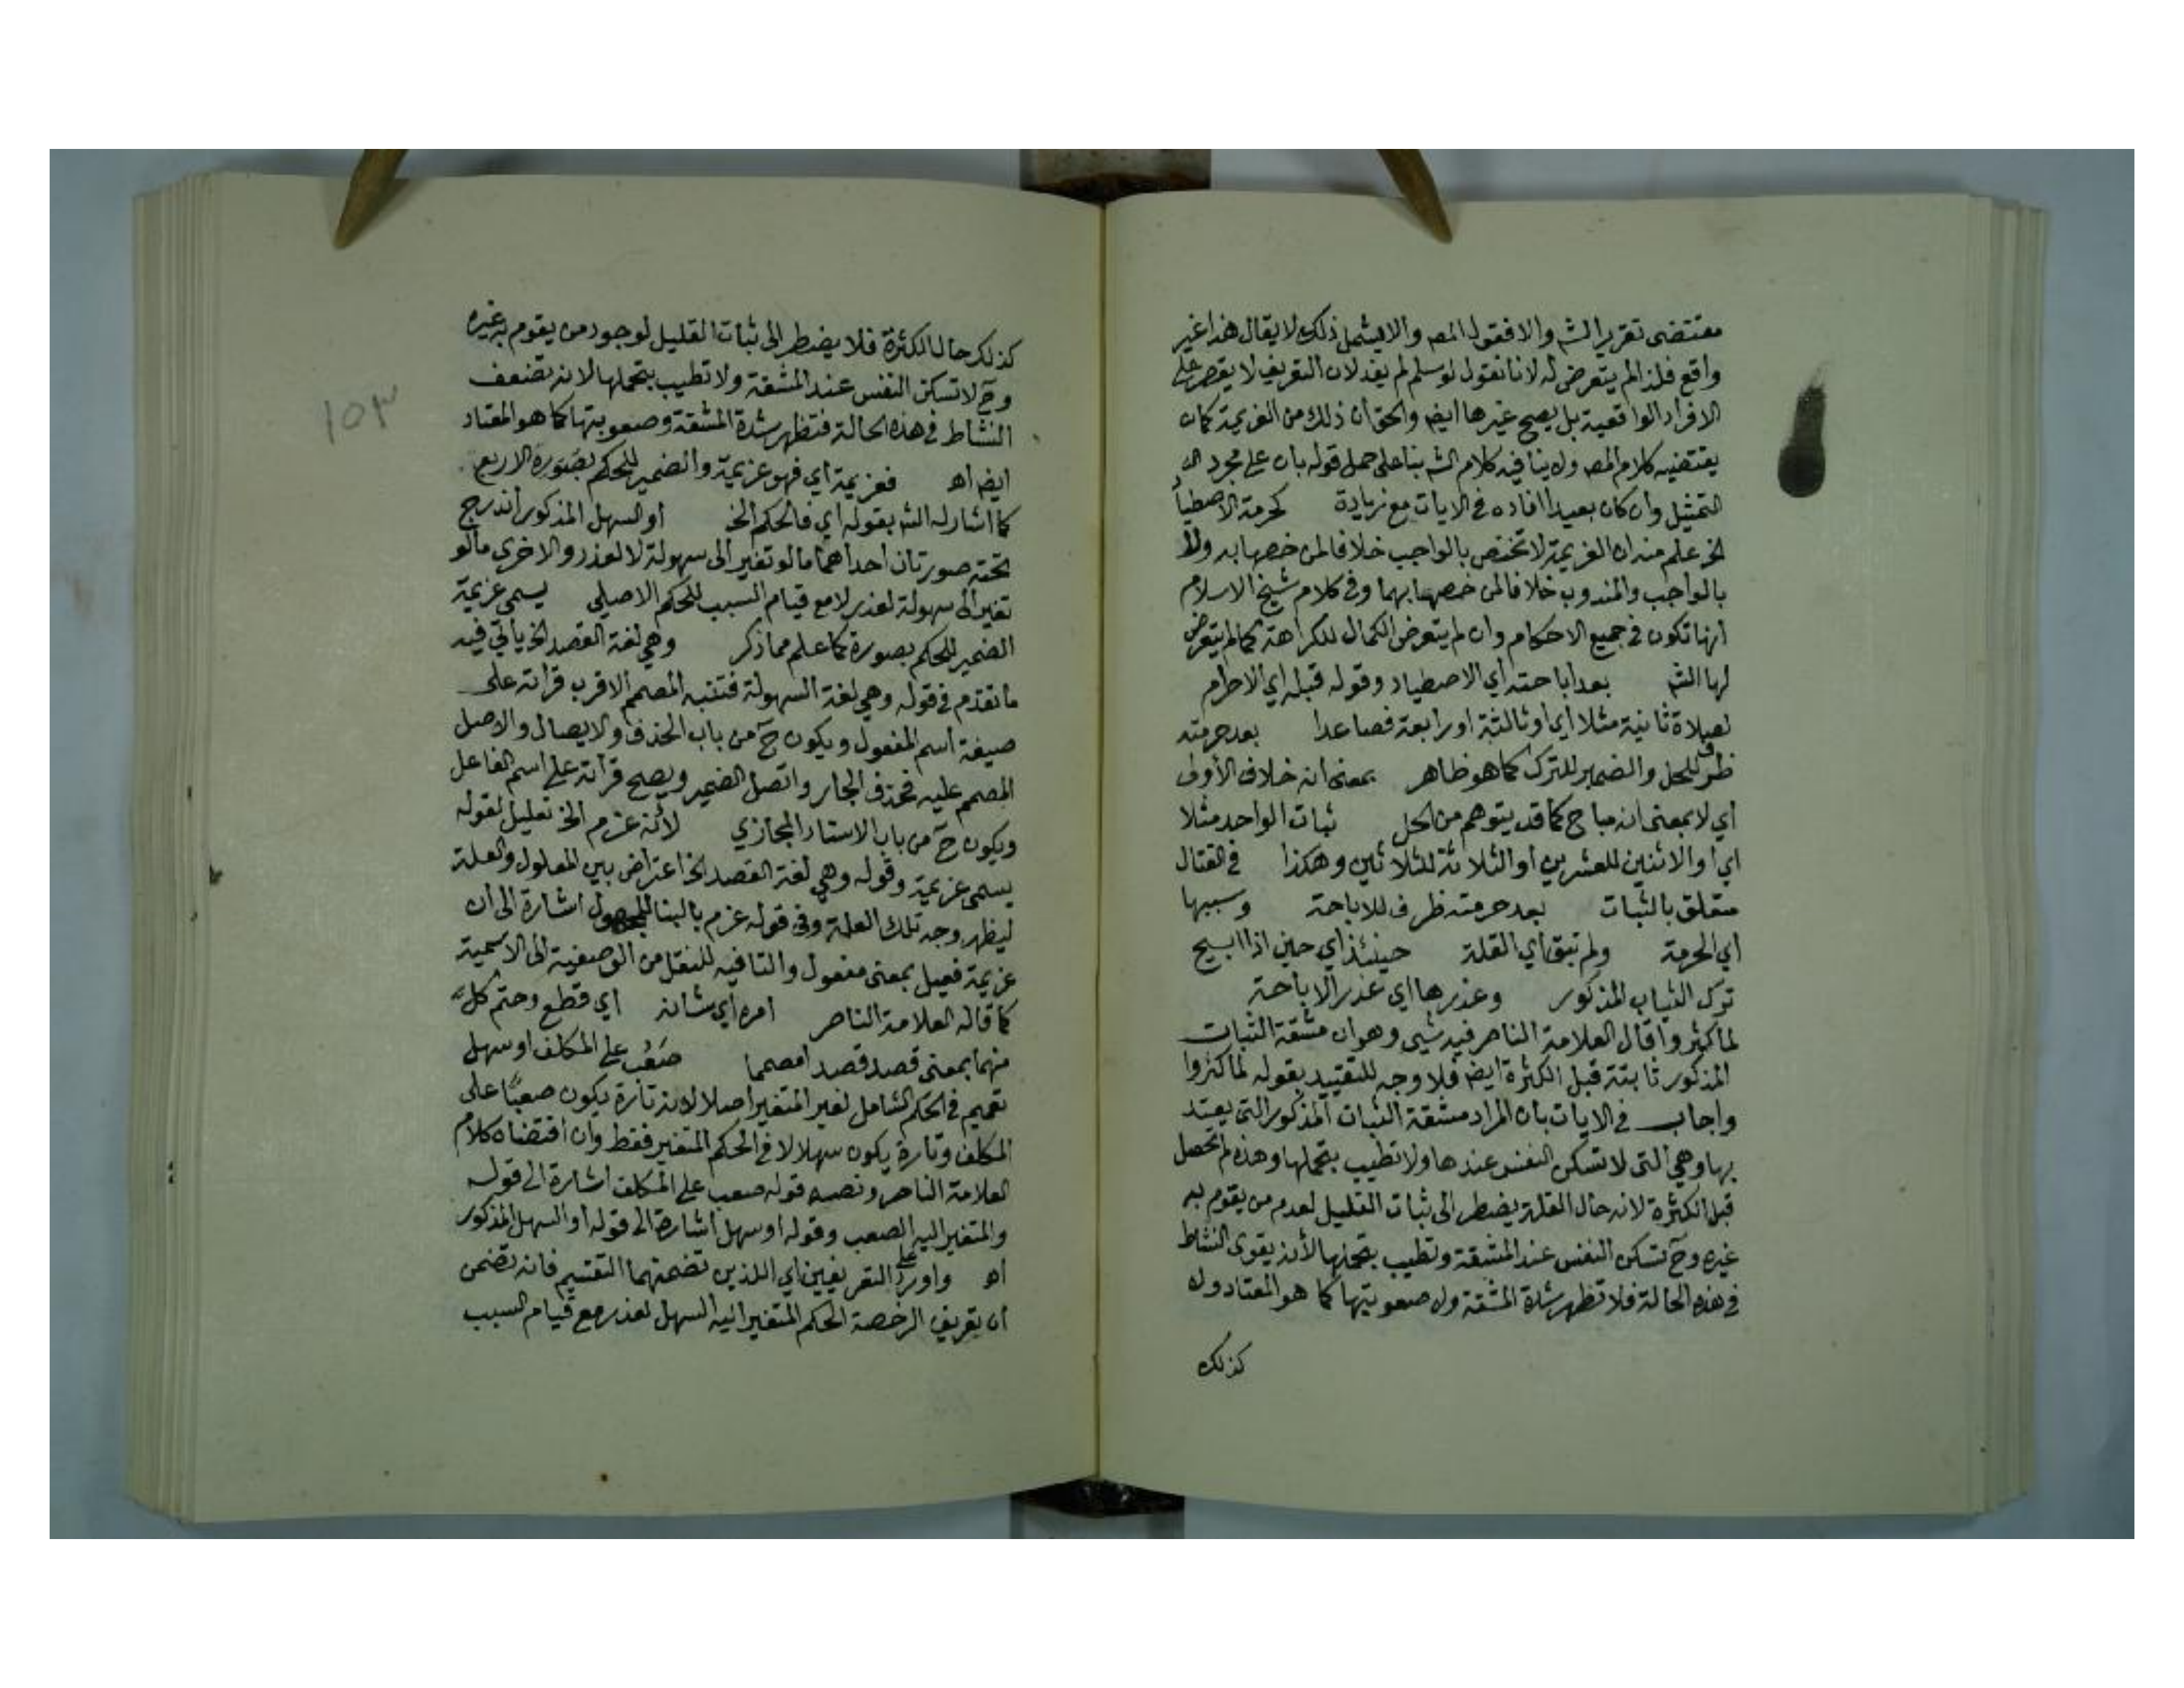 مقتضى تقرير الشم والا فقول المصم والا يشمل ذلك لا يقال هذا غير
واقع فلذا لم يتعرض له لانا نقول لو سلم لم يفد لان التعريف لا يقصر على
الافراد الواقعية بل يصح غيرها ايضم والحق ان ذلك من العزيمة كان
يقتضيه كلام المصم ولا ينافيه كلام الشم بنا على حمل قوله بان على مجرد
التمثيل وان كان بعيدا افاده في الايات مع زيادة كحرمة الاصطيا
الخ علم منه ان العزيمة لا تختص بالواجب خلافا لمن خصها به ولا
بالواجب والمندوب خلافا لمن خصها بهما وفي كلام شيخ الاسلام
انها تكون في جميع الاحكام وان لم يتعرض الكمال للكراهة كما لم يتعرض
لها الشم بعد اباحته اي الاصطياد وقوله قبله اي الاحرام
لصلاة ثانية مثلا اي او ثالثة او رابعة فصاعدا بعد حرمته
ظرف للحل والضمير للترك كما هو ظاهر بمعنى انه خلاف الأولى
اي لا بمعنى انه مباح كما قد يتوهم من الحل ثبات الواحد مثلا
اي او الاثنين للعشرين او الثلاثة للثلاثين وهكذا في القتال
متعلق بالثبات بعد حرمته ظرف للاباحة وسببها
اي الحرمة ولم تبق اي القلة حينئذ اي حين اذا ابيح
ترك الثبات المذكور وعذرها اي عذر الاباحة
لما كثروا قال العلامة الناصر فيه شيى وهو ان مشقة الثبات
المذكور ثابتة قبل الكثرة ايضم فلا وجه للتقييد بقوله لما كثروا
واجاب في الايات بان المراد مشقة الثبات المذكور التي يعتد
بها وهي التي لا تسكن النفس عندها ولا تطيب بتحملها وهذه لم تحصل
قبل الكثرة لانه حال القلة يضطر الى ثبات القليل لعدم من يقوم به
غيره وح تسكن النفس عند المشقة وتطيب بتحملها لأنه يقوى النشاط
في هذه الحالة فلا تظهر شدة المشقة ولا صعوبتها كما هو المعتاد ولا
كذلك
١٥٣
كذلك حال الكثرة فلا يضطر الى ثبات القليل لوجود من يقوم به غيره
وح لا تسكن النفس عند المشقة ولا تطيب بتحملها لانه تضعف
النشاط في هذه الحالة فتظهر شدة المشقة وصعوبتها كما هو المعتاد
ايضم اه فعزيمة اي فهو عزيمة والضمير للحكم بصورة الاربع
كما اشار له الشم بقوله اي فالحكم الخ او السهل المذكور اندرج
تحته صورتان احداهما ما لو تغير الى سهولة لا لعذر والاخرى ما لو
تغير الى سهولة لعذر لا مع قيام السبب للحكم الاصلي يسمى عزيمة
الضمير للحكم بصورة كما علم مما ذكر وهي لغة القصد الخ يأتي فيه
ما تقدم في قوله وهي لغة السهولة فتنبه المصمم الاقرب قرأته على
صيغة اسم المفعول ويكون ح من باب الحذف والايصال والاصل
المصمم عليه فحذف الجار واتصل الضمير ويصح قرأته على اسم الفاعل
ويكون ح من باب الاستاد المجازي لانه عزم الخ تعليل لقوله
يسمى عزيمة وقوله وهي لغة القصد الخ اعتراض بين المعلول والعلة
ليظهر وجه تلك العلة وفي قوله عزم بالبنا للمجهول اشارة الى ان
عزيمة فعيل بمعنى مفعول والتا فيه للنقل من الوصفية الى الاسمية
كما قاله العلامة الناصر امره اي شانه اي قطع وحتم كل
منهما بمعنى قصد قصدا مصمما صَعُب على المكلف او سهل
تعميم في الحكم الشامل لغير المتغير اصلا لانه تارة يكون صعبًا على
المكلف وتارة يكون سهلا لا في الحكم المتغير فقط وان اقتضاه كلام
العلامة الناصر ونصه قوله صعب على المكلف اشارة الى قوله
والمتغير اليه الصعب وقوله او سهل اشارة الى قوله او السهل المذكور
اه واورد على التعريفين اي اللذين تضمنهما التقسيم فانه تضمن
ان تعريف الرخصة الحكم المتغير اليه السهل لعذر مع قيام السبب